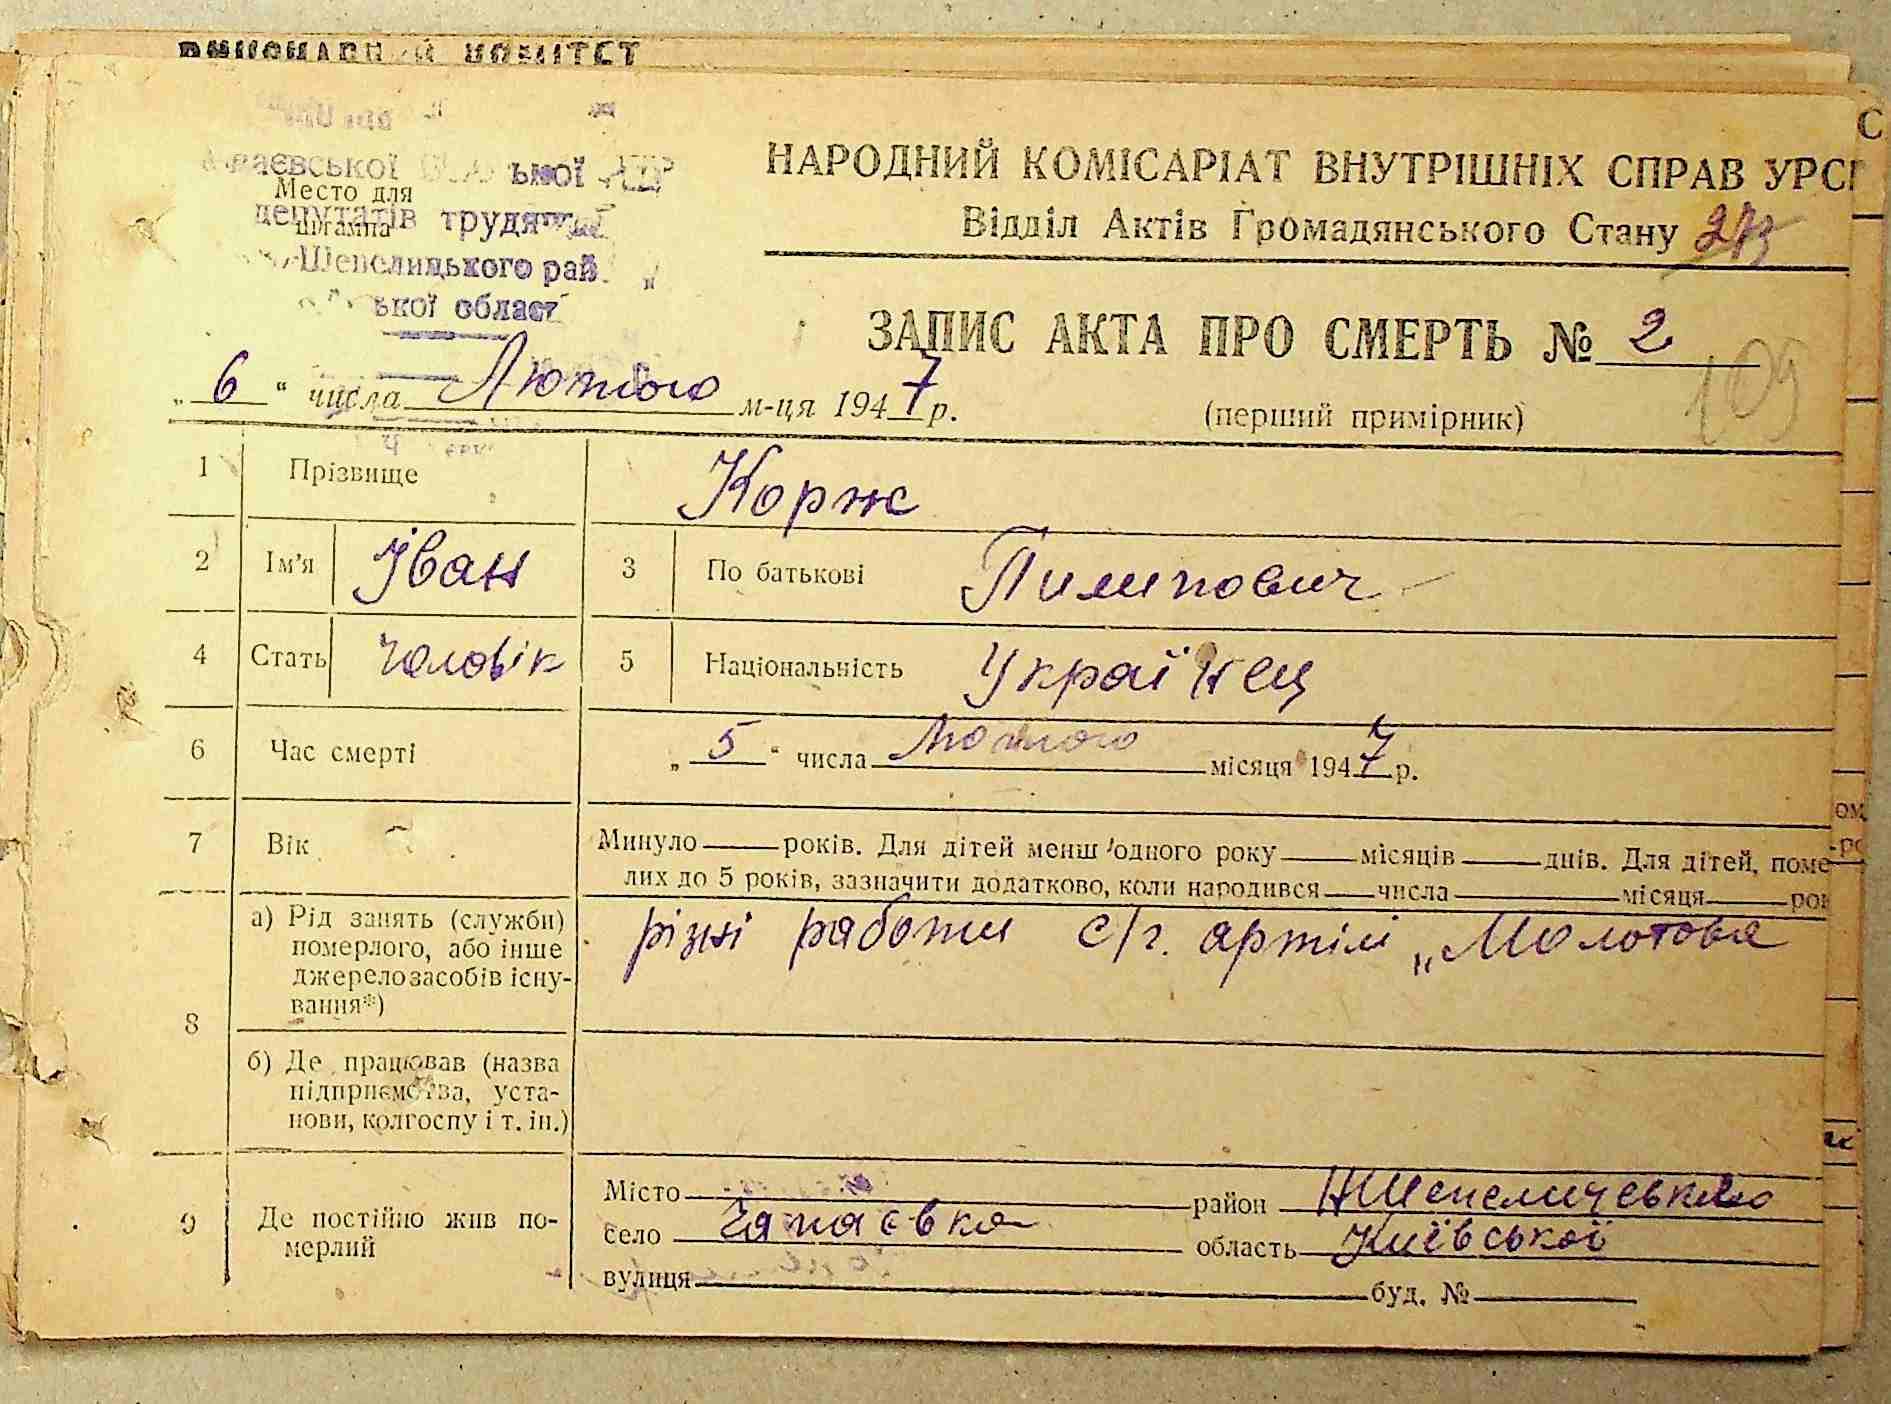 КОМІТЕТ
Місто для
штампа
депутатів трудящ
Шепелицького рай
ської област
НАРОДНИЙ КОМІСАРІАТ ВНУТРІШНІХ СПРАВ УРСР
Відділ Актів Громадянського Стану 273
ЗАПИС АКТА ПРО СМЕРТЬ № 2
109
„ 6 “ числа Лютого м-ця 1947 р.
(перший примірник)
1 Прізвище Корж
2 Ім'я Іван 3 По батькові Пилипович
4 Стать чоловік 5 Національність Українец
6 Час смерті „ 5 “ числа Лютого місяця 1947 р.
7 Вік Минуло ___ років. Для дітей менш одного року ___ місяців ___ днів. Для дітей, поме-
лих до 5 років, зазначити додатково, коли народився ___ числа ___ місяця ___ рок
8 а) Рід занять (служби) померлого, або інше джерело засобів існу- вання*) різні работи с/г. артілі „Молотова
б) Де працював (назва підприємства, уста- нови, колгоспу і т. ін.)
9 Де постійно жив по- мерлий
Місто ___ район НШепеличевького
село Чапаєвка область Київської
вулиця ___ буд. № ___